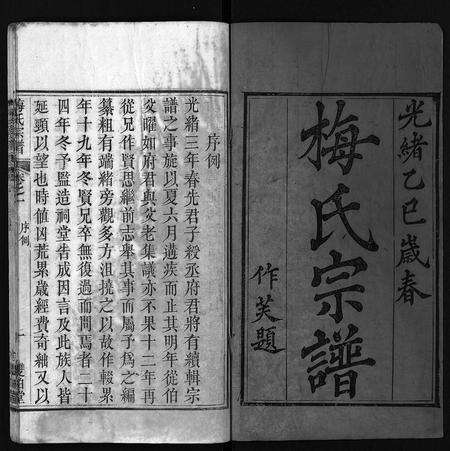 光緒乙巳歲春
梅氏宗譜
作芙題
序例
光緒三年春先君子殺丞府君將有續輯宗
譜之事施以夏六月遘疾而止其明年從伯
炆曜如府君與炆老集議亦不果十二年再
從兄作賢思繼前志舉其事而屬予為之編
纂粗有端緒旁觀多方沮撓之以故作輟累
年十九年冬賢兄卒無復過而問焉者二十
四年冬予監造祠堂告成因言及此族人皆
延頸以望也時值凶荒累歲經費奇絀又以
梅氏宗譜
卷之一
序例
雙柏堂